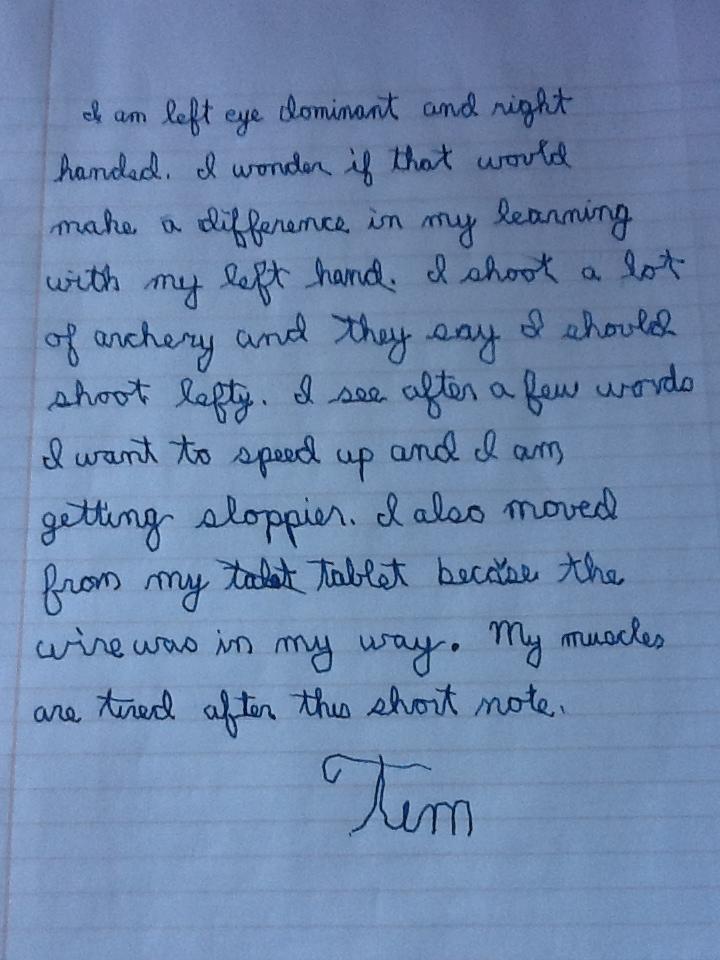 I am left eye dominant and right
handed. I wonder if that would
make a difference in my learning
with my left hand. I shoot a lot
of archery and they say I should
shoot lefty. I see after a few words
I want to speed up and I am
getting sloppier. I also moved
from my tablet because the
wire was in my way. My muscles
are tired after this short note.
Tim